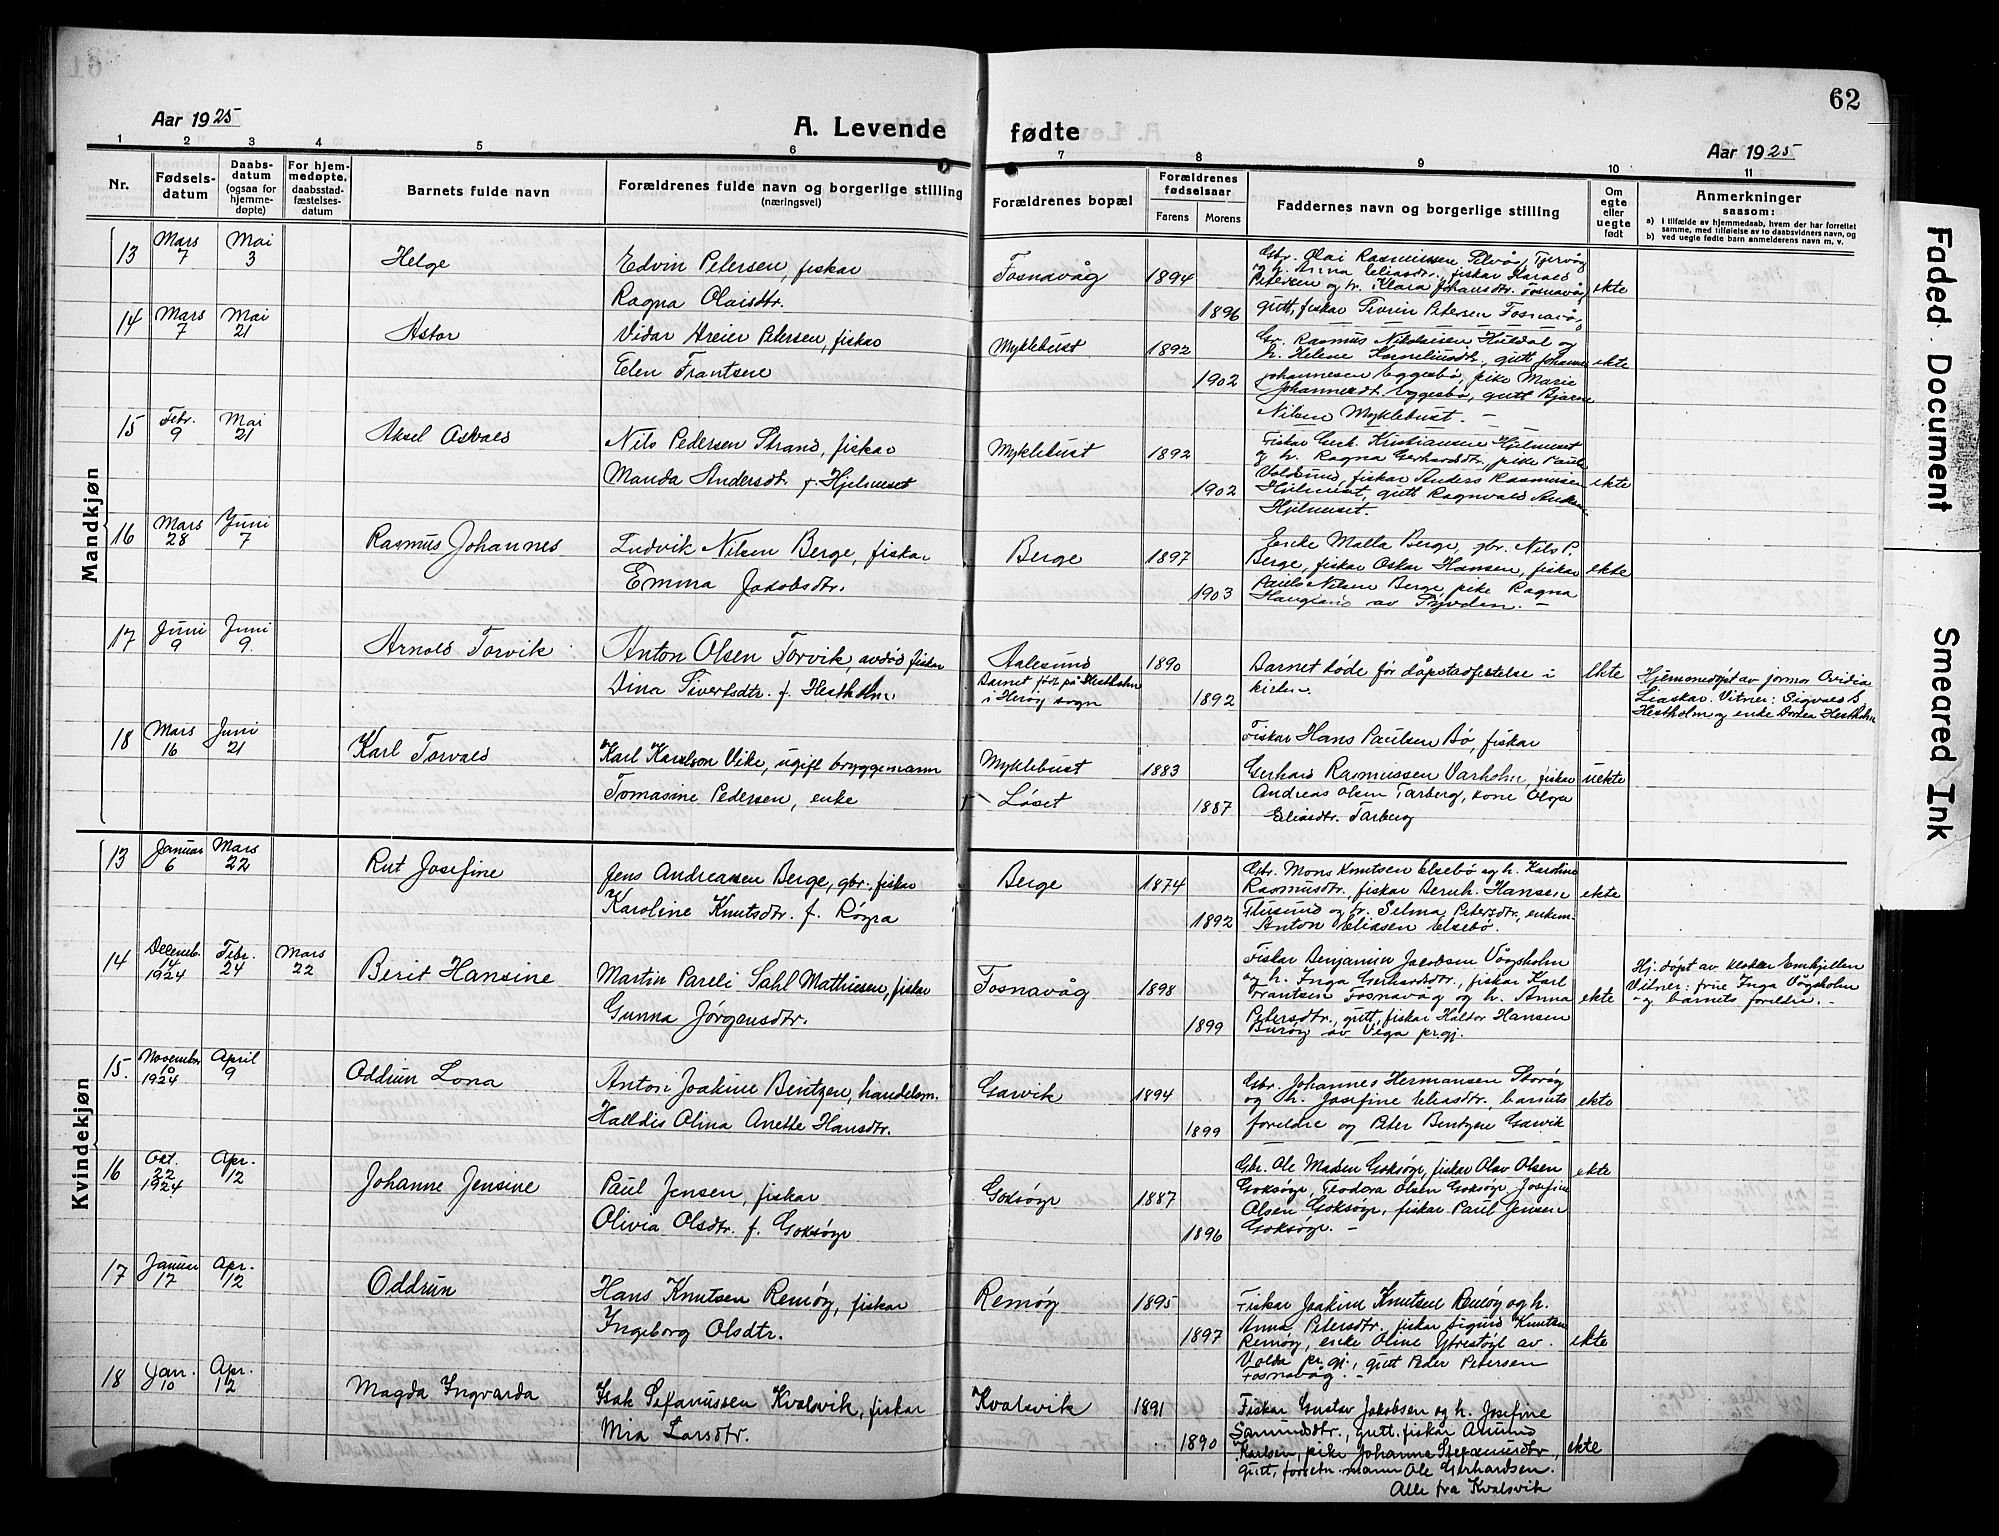 62
Aar 1925
A. Levende fødte
Aar 1925
1 2 3 4 5 6 7 8 9 10 11
Nr.
Fødselsdatum
Daabsdatum (ogsaa for hjemmedøpte)
For hjemmedøpte, daabsstadfæstelsesdatum
Barnets fulde navn
Forældrenes fulde navn og borgerlige stilling
(næringsvei)
Forældrenes bopæl
Forældrenes fødselsaar
Farens Morens
Faddernes navn og borgerlige stilling
Om egte eller uegte født
Anmerkninger saasom:
a) I tilfælde av hjemmedaab, hvem der har forrettet samme, med tilføielse av to daabsvidners navn, og
b) ved uegte fødte barn anmelderens navn m. v.
Mandkjøn
13 Mars 7 Mai 3 Helge
Edvin Petersen, fiskar
Ragna Olaisdtr.
Fosnavåg 1894 1896
Gbr. Olai Rasmussen Tjervåg
og h. Anna Eliasdtr., fiskar Harald
Petersen og h. Klara Johansdtr. Fosnavåg,
gutt, fiskar Severin Petersen Fosnavåg
ekte
14 Mars 7 Mai 21 Astor
Vidar Dreier Petersen, fiskar
Elen Frantsene
Myklebust 1892 1902
Gbr. Rasmus Nikolaisen Huldal og
h. Helene Korneliusdtr., gutt Johannes
Johannesen Eggesbø, pike Marie
Johannesdt. Eggesbø, gutt Bjarne
Nilsen Myklebust. —
ekte
15 Febr. 9 Mai 21 Aksel Osvald
Nils Pedersen Strand, fiskar
Manda Andersdt. f. Hjelmeset
Myklebust 1892 1902
Fiskar Gerh. Kristiansen Hjelmeset
og h. Ragna Gerhardsdtr, pike Paula
Voldsund, fiskar Anders Rasmussen
Hjelmeset, gutt Ragnvald Anders.
Hjelmeset.
ekte
16 Mars 28 Juni 7 Rasmus Johannes
Ludvik Nilsen Berge, fiskar
Emma Jakobsdtr.
Berge 1897 1903
Enke Malla Berge, gbr. Nils P.
Berge, fiskar Oskar Hansen, fiskar
Pauls Nilsen Berge pike Ragna
av Syvden. —
ekte
17 Juni 9 Juni 9 Arnold Torvik
Anton Olsen Torvik avdød fiskar
Dina Sivertsdtr. f. Hestholm
Aalesund
Barnet født på Hestholm
i Herøy sogn
1890 1892
Barnet døde før dåpstadfestelse i
kirken.
ekte
Hjemmedøpt av jormor Ovidia
Liaskar. Vitner: Sigvald S.
Hestholm og enke Dorthea Hestholm
18 Mars 16 Juni 21 Karl Torvald
Karl Karlson Vike, ugift bryggemann
Tomasine Pedersen, enke
Myklebust
Løset
1883 1887
Fiskar Hans Paulsen Bø, fiskar
Gerhard Rasmussen Varholm, fiskar
Andreas Olsen Tarberg, kone Olga
Eliasdtr. Tarberg
uekte
Kvindekjøn
13 Januar 6 Mars 22 Rut Josefine
Jens Andreassen Berge, gbr. fiskar
Karoline Knutsdtr. f. Røyra
Berge 1874 1892
Gbr. Mons Knutsen Elsebø og h. Karoline
Rasmusdtr. fiskar Bernh. Hansen
Flusund og h. Selma Petersdtr., enkem.
Anton Eliasen Elsebø.
ekte
14 Decemb. 14 1924 Febr. 24 Mars 22 Berit Hansine
Martin Pareli Sahl Mathiesen, fiskar
Gunna Jørgensdtr.
Fosnavåg 1898 1899
Fiskar Benjamin Jacobsen Vågsholm
og h. Inga Gerhardsdtr., fiskar Karl
Frantsen Fosnavåg og h. Anna
Petersdtr., gutt, fiskar Haldor Hansen
Burøy av Vega prgj.
ekte
Hj. døpt av klokker Emhjellen
Vitner: frue Inga Vågsholm
og barnets foreldre. —
15. November 10 1924 April 9 Oddrun Lona
Anton Joakim Bentzen, handelsm.
Halldis Olina Anette Hansdtr.
Garvik 1894 1899
Gbr. Johannes Hermansen Storøy
og h. Josefine Eliasdtr, barnets
foreldre og Peter Bentzen Garvik
ekte
16 Okt. 22 1924 Apr. 12 Johanne Jensine
Paul Jensen, fiskar
Olivia Olsdtr. f. Goksøyr
Goksøyr 1887 1896
Gbr. Ole Madsen Goksøyr, fiskar Olav Olsen
Goksøyr, Teodora Olsen Goksøyr Josefine
Olsen Goksøyr, fiskar Paul Jensen
Goksøyr. —
ekte
17 Januar 17 Apr. 12 Oddrun
Hans Knutsen Remøy, fiskar
Ingeborg Olsdtr.
Remøy 1895 1897
Fiskar Joakim Knutsen Remøy og h.
Anna Petersdtr. fiskar Sigurd Knutsen
Remøy, enke Oline Ytrestøyl av
Volda pr. gj., gutt Peder Petersen
Fosnavåg. —
ekte
18 Jan. 10 Apr. 12 Magda Ingvarda
Isak Stefanussen Kvalsvik, fiskar
Mia Larsdtr.
Kvalsvik 1891 1890
Fiskar Gustav Jakobsen og h. Josefine
Samundsdtr., gutt. fiskar Amund
Karlsen, pike Johanne Stefanusdtr,
gutt, forretn.mann Ole Gerhardsen.
Alle fra Kvalsvik
ekte
Faded Document
Smeared Ink